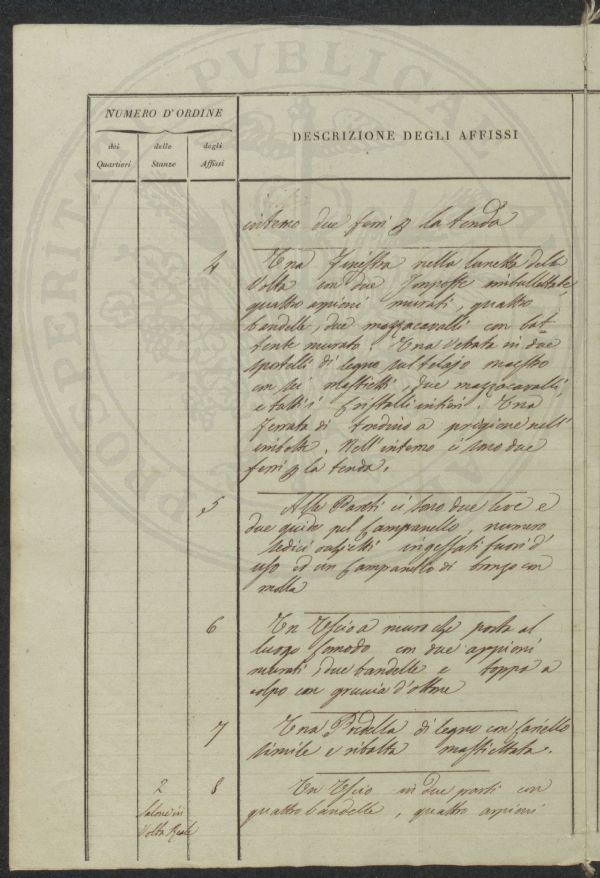 NUMERO D'ORDINE
DESCRIZIONE DEGLI AFFISSI
dei Quartieri
delle Stanze
degli Affissi
interno due ferri p la tenda
4 Una Finestra nella lunetta della
Volta con due Imposte imbullettate,
quattro arpioni murati, quattro
bandelle, due mazzacavalli con bat-
tente murato. Una Vetrata in due
sportelli di legno sul telajo maestro
con sei mastietti, due mazzacavalli,
e tutti i Cristalli intieri. Una
ferrata di tondino a prigione nell'
imbotte. Nell'interno ci sono due
ferri p la tenda.
5 Alle Pareti ci sono due leve e
due guide pel Campanello, numero
sedici ingessati fuori d'
uso ed un Campanello di bronzo con
molla
6 Un Uscio a muro che porta al
luogo Comodo con due arpioni
murati, due bandelle e toppa a
colpo con gruccia d'ottone
7 Una Predella di legno con
simile e ribalta mastiettata.
2 8 Un Uscio in due parti con
Salone in quattro bandelle, quattro arpioni
Volta Reale